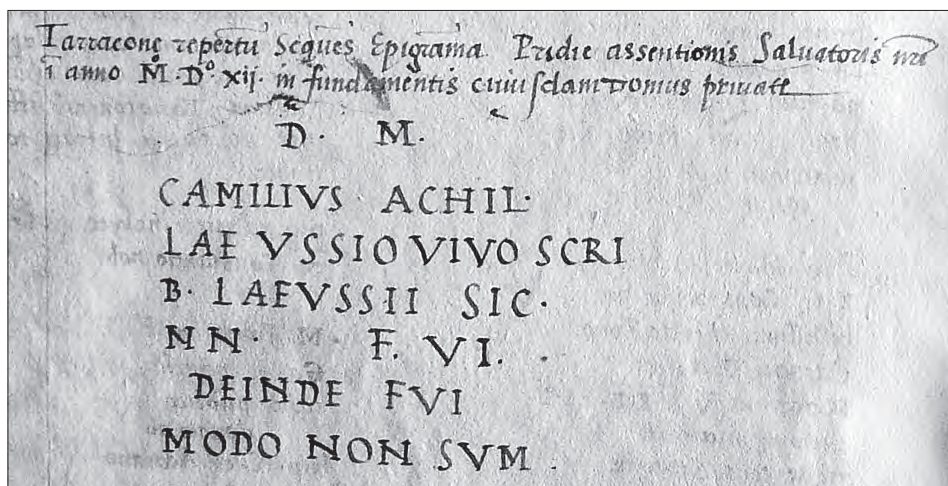 Tarracone repertū Seques Epigrama. Pridie assentionis Saluatoris nrī
ī anno M̊·Dº·xij· in fundamentis cuiusdam domus priuate
D· M·
CAMILIVS ACHIL·
LAE VSSIO VIVO SCRI
B· LAEVSSII SIC·
NN· F. VI.
DEINDE FVI
MODO NON SVM .